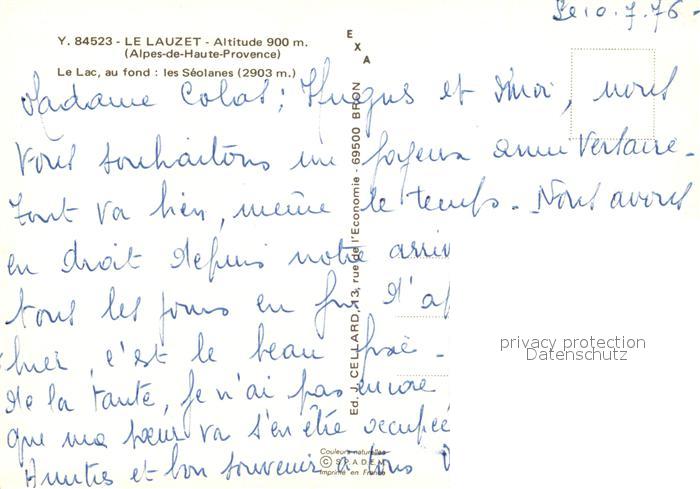 Le 10.7.76 -
Y. 84523 - LE LAUZET - Altitude 900 m.
(Alpes-de-Haute-Provence)
Le Lac, au fond : les Séolanes (2903 m.)
EXA
Madame Colas, Hugues et moi, nous
vous souhaitons un joyeux anniversaire -
Tout va bien, même le temps - Nous avons
eu droit depuis notre arriv
tous les jours en fin d'ap
hier, c'est le beau fixe -
de la tante, je n'ai pas encore
que ma sœur va s'en être occupée
Amitiés et bon souvenir à tous
Ed. J. CELLARD, 13, rue de l'Economie - 69500 BRON
Couleurs naturelles
© SPADEM
Imprimé en France
privacy protection
Datenschutz